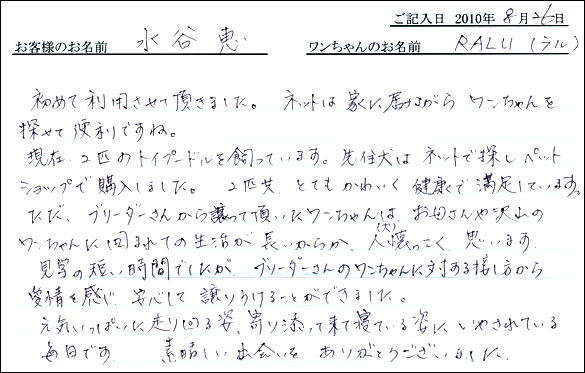 ご記入日 2010年 8月26日
お客様のお名前 水谷 恵 ワンちゃんのお名前 RALU (ラル)
初めて利用させて頂きました。 ネットは家に居ながら ワンちゃんを
探せて便利ですね。
現在、2匹のトイプードルを飼っています。先住犬は ネットで探し ペット
ショップで購入しました。 2匹共 とてもかわいく 健康で満足しています。
ただ、ブリーダーさんから譲って頂いたワンちゃんは、お母さんや沢山の
ワンちゃんに囲まれての生活が長いからか、人(犬)懐っこく 思います。
見学の短い時間でしたが ブリーダーさんのワンちゃんに対する接し方から
愛情を感じ 安心して 譲りうけることができました。
元気いっぱいに走り回る姿、寄り添って来て寝ている姿に いやされている
毎日です。 素晴しい出会いを ありがとうございました。